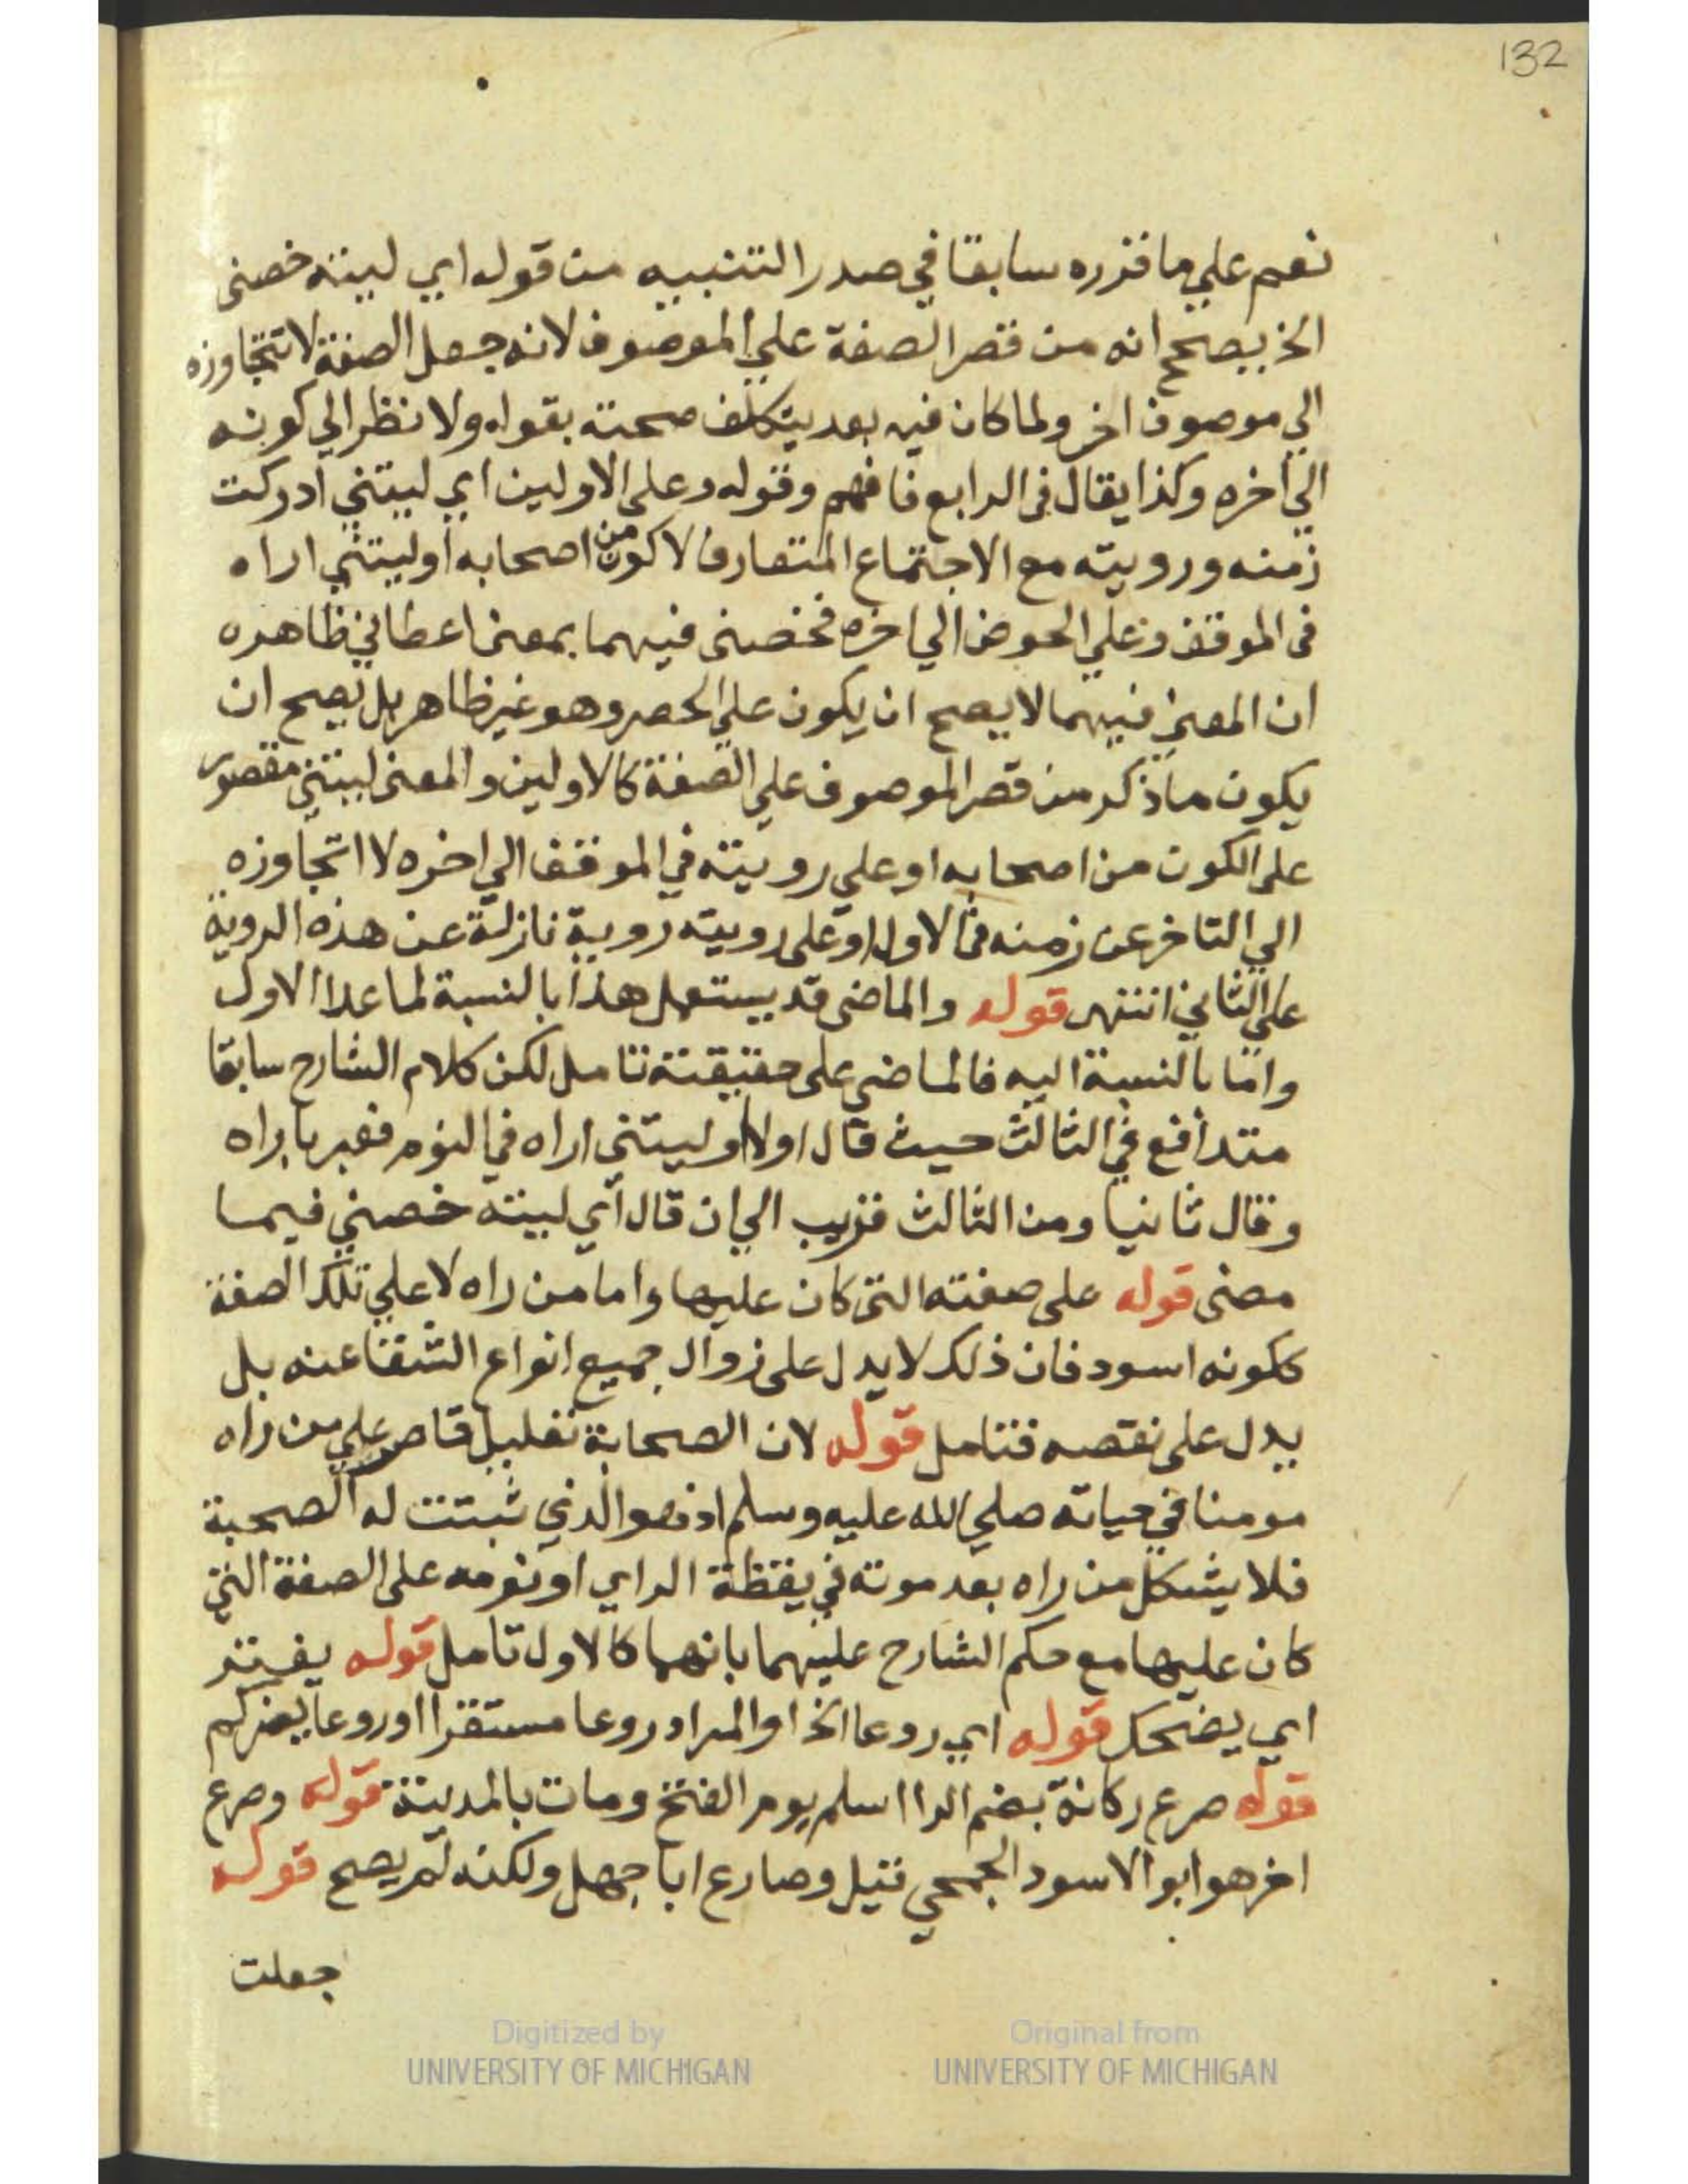 132
نعم علي ما قرره سابقا في صدر التنبيه من قوله اي ليته خصنى
الخ يصح انه من قصر الصفة علي الموصوف لانه جعل الصفة لا تتجاوزه
الي موصوف اخر ولما كان فيه بعد يتكلف صحته بقوله ولا نظر الي كونه
الي اخره وكذا يقال فى الرابع فافهم وقوله وعلى الاولين اي ليتني ادركت
زمنه ورويته مع الاجتماع المتعارف لاكون من اصحابه او ليتني اراه
فى الموقف وعلي الحوض الي اخره فخصنى فيهما بمعنى اعطاني ظاهره
ان المعني فيهما لا يصح ان يكون علي الحصر وهو غير ظاهر بل يصح ان
يكون ما ذكر من قصر الموصوف علي الصفة كالاولين والمعنى ليتني مقصور
على الكون من اصحابه او علي رويته في الموقف الي اخره لا اتجاوزه
الي التاخر عن زمنه فى الاول او على رويته روية نازلة عن هذه الروية
علي الثاني انتهى قوله والماضى قد يستعمل هذا بالنسبة لما عدا الاول
واما بالنسبة اليه فالماضي على حقيقته تامل لكن كلام الشارح سابقا
متدافع في الثالث حيث قال اولا او ليتني اراه في النوم فعبر باراه
وقال ثانيا ومن الثالث قريب الي ان قال اي ليته خصني فيما
مضى قوله على صفته التى كان عليها واما من راه لا علي تلك الصفة
ككونه اسود فان ذلك لا يدل على زوال جميع انواع الشقا عنه بل
يدل على نقصه فتامل قوله لان الصحابة تعليل قاصر علي من راه
مومنا في حياته صلي الله عليه وسلم اذ هو الذي ثبتت له الصحبة
فلا يشكل من راه بعد موته في يقظة الراي او نومه على الصفة التي
كان عليها مع حكم الشارح عليهما بانهما كالاول تامل قوله يفتر
اي يضحك قوله اي روعا الخ او المراد روعا مستقرا او روعا يضركم
قوله صرع ركانة بضم الرا اسلم يوم الفتح ومات بالمدينة قوله وصرع
اخر هو ابو الاسود الجمحي قيل وصارع ابا جهل ولكنه لم يصح قوله
جعلت
Digitized by
UNIVERSITY OF MICHIGAN
Original from
UNIVERSITY OF MICHIGAN